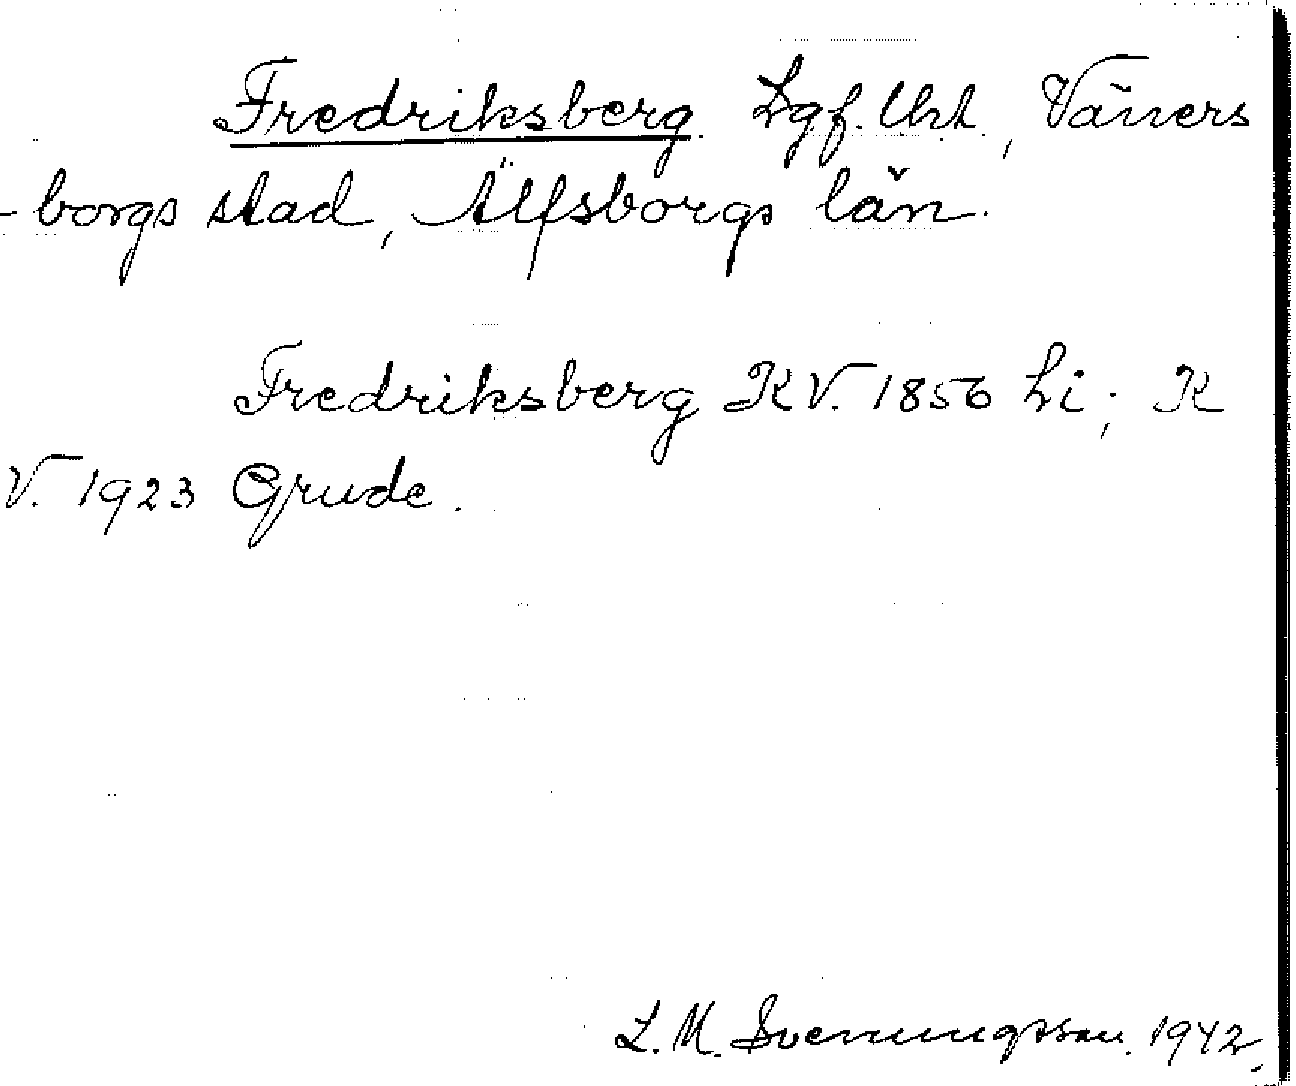 Fredriksberg. Lgf. Uht., Väners
- borgs stad, Älfsborgs län.
Fredriksberg K V. 1856 Li; K
V. 1923 Grude.
L. M. Svenungsson. 1942.